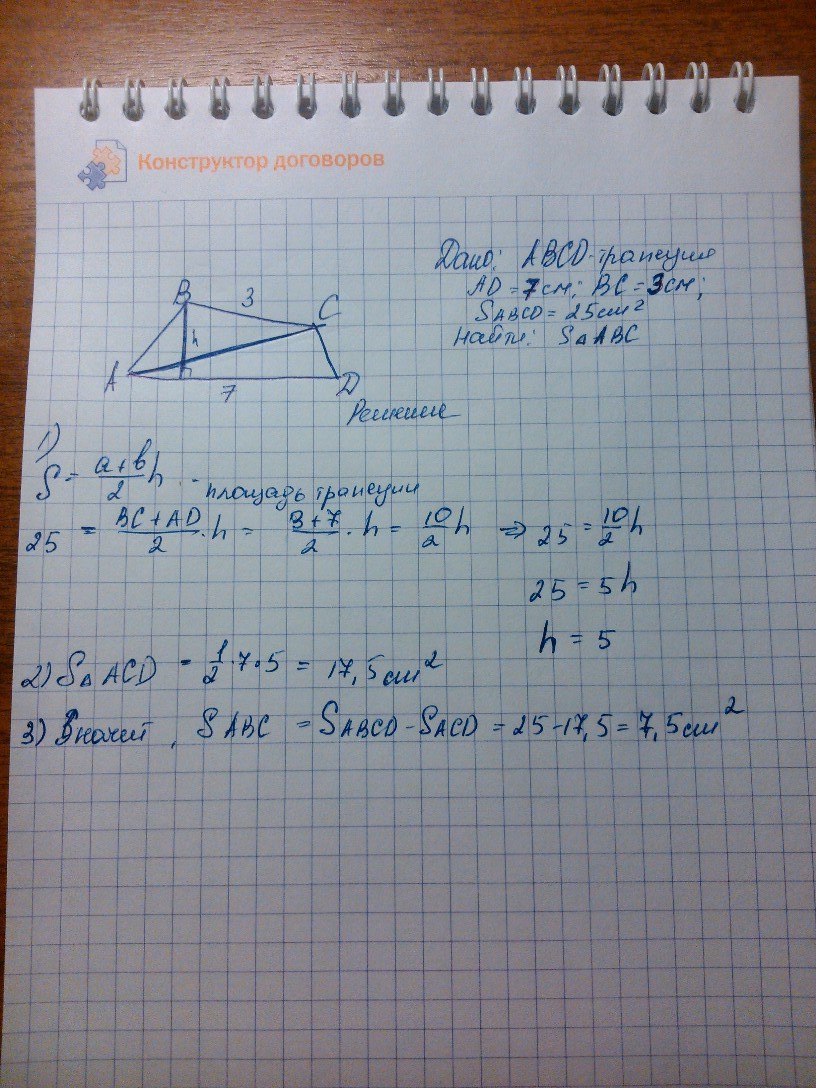 Конструктор договоров
Дано: ABCD-трапеция
AD = 7см; BC = 3см;
SABCD = 25см²
Найти: S△ABC
B 3 C
h
A 7 D
Решение
1)
S = a+b/2 h - площадь трапеции
25 = BC+AD/2 · h = 3+7/2 · h = 10/2 h ⇒ 25 = 10/2 h
25 = 5h
h = 5
2) S△ACD = 1/2 · 7 · 5 = 17,5см²
3) Значит, SABC = SABCD - SACD = 25-17,5 = 7,5см²